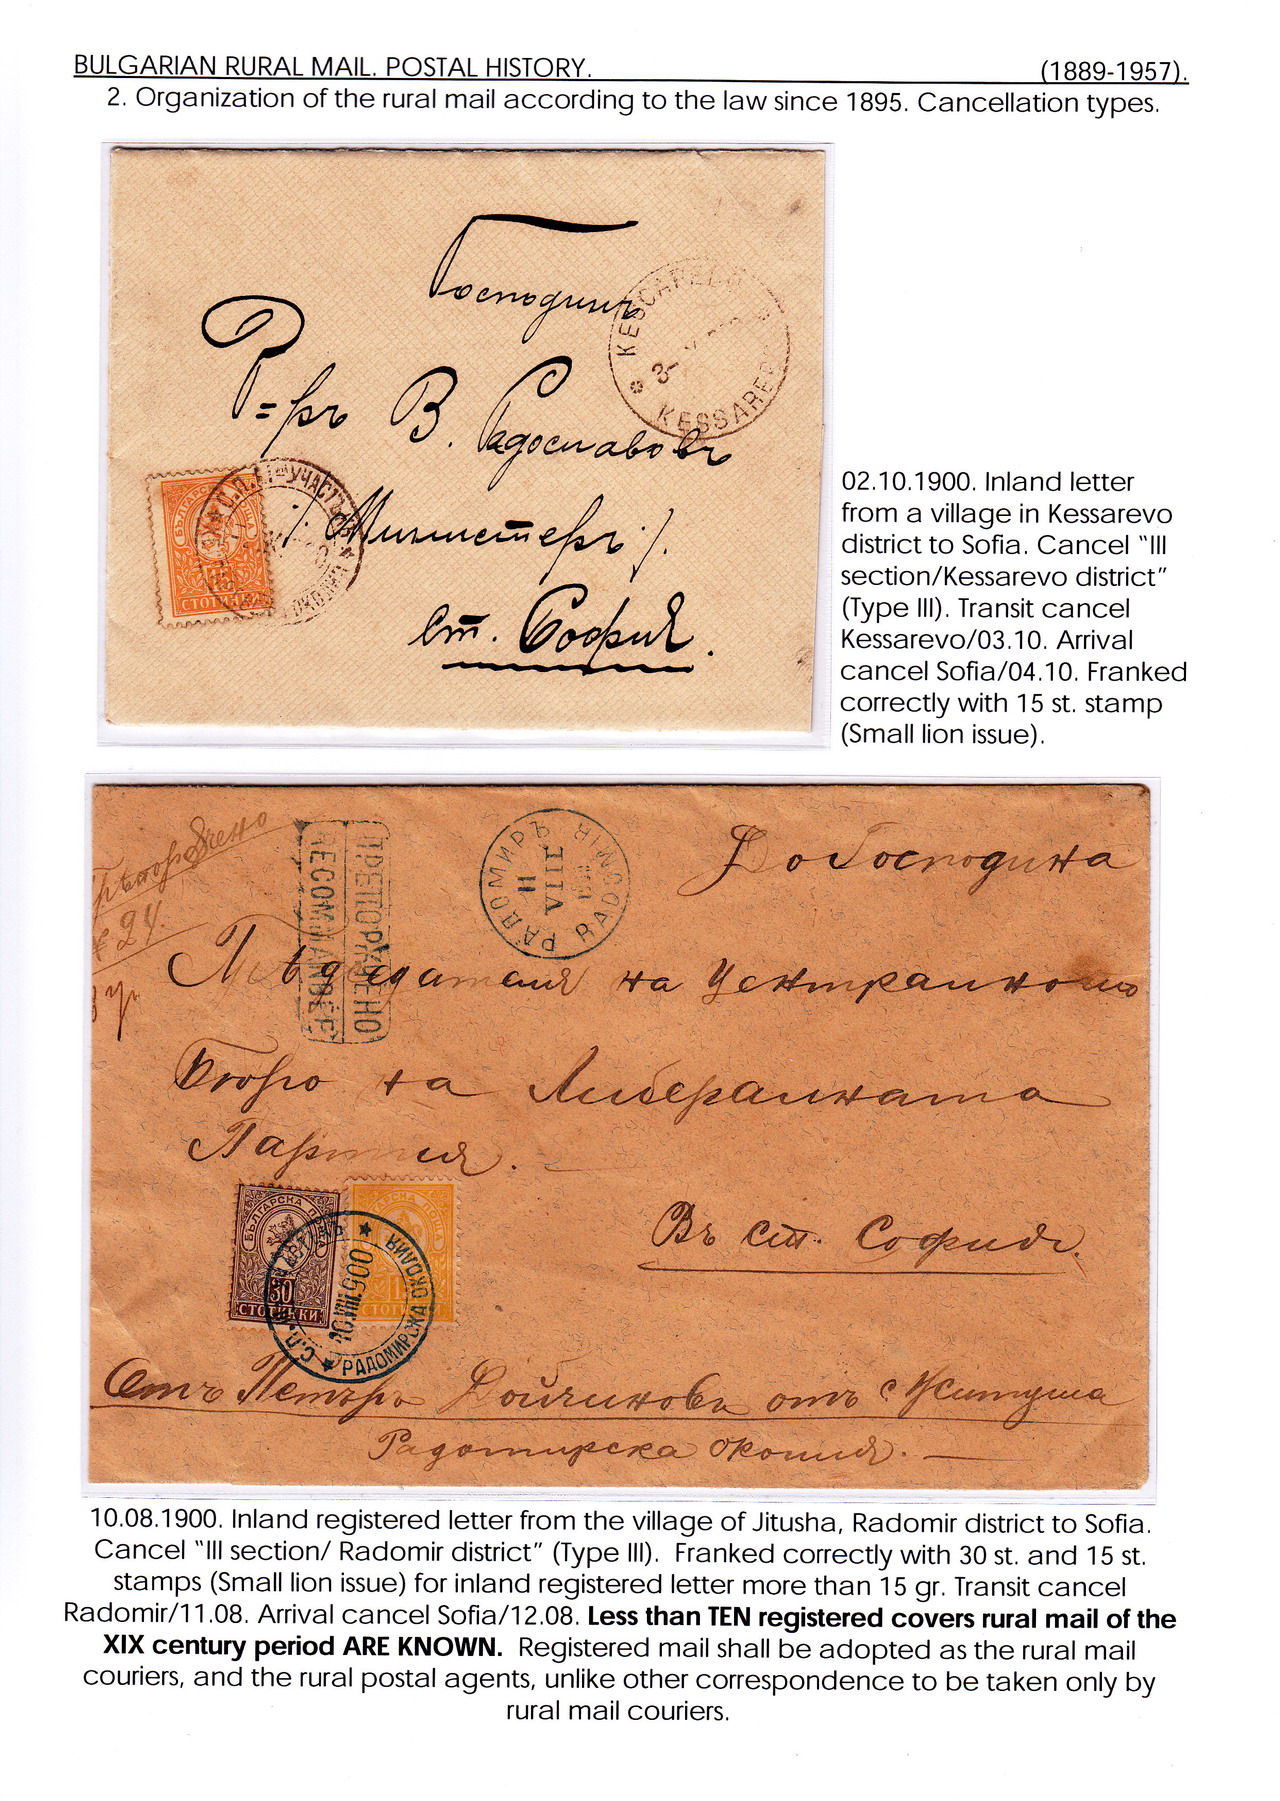 BULGARIAN RURAL MAIL. POSTAL HISTORY. (1889-1957).
2. Organization of the rural mail according to the law since 1895. Cancellation types.
Господинъ
KESSAREVO
3
KESSAREVO
Д=ръ В. Радославовъ
/Министеръ/.
ст. София.
БЪЛГАРСКА ПОЩА
15
СТОТИНКИ
УЧАСТЪКЪ
02.10.1900. Inland letter
from a village in Kessarevo
district to Sofia. Cancel "III
section/Kessarevo district"
(Type III). Transit cancel
Kessarevo/03.10. Arrival
cancel Sofia/04.10. Franked
correctly with 15 st. stamp
(Small lion issue).
24.
ПРЕПОРѪЧЕНО
RECOMMANDÉE
РАДОМИРЪ RADOMIR
11
VIII
До Господина
Прѣдседателя на Централното
Бюро на Либералната
Партия.
Въ ст. София.
БЪЛГАРСКА ПОЩА
30
СТОТИНКИ
15
СТОТИНКИ
10.VIII.900
РАДОМИРСКА ОКОЛИЯ
Отъ Петъръ Дойчиновъ отъ с. Житуша
Радомирска околия.
10.08.1900. Inland registered letter from the village of Jitusha, Radomir district to Sofia.
Cancel "III section/ Radomir district" (Type III). Franked correctly with 30 st. and 15 st.
stamps (Small lion issue) for inland registered letter more than 15 gr. Transit cancel
Radomir/11.08. Arrival cancel Sofia/12.08. Less than TEN registered covers rural mail of the
XIX century period ARE KNOWN. Registered mail shall be adopted as the rural mail
couriers, and the rural postal agents, unlike other correspondence to be taken only by
rural mail couriers.